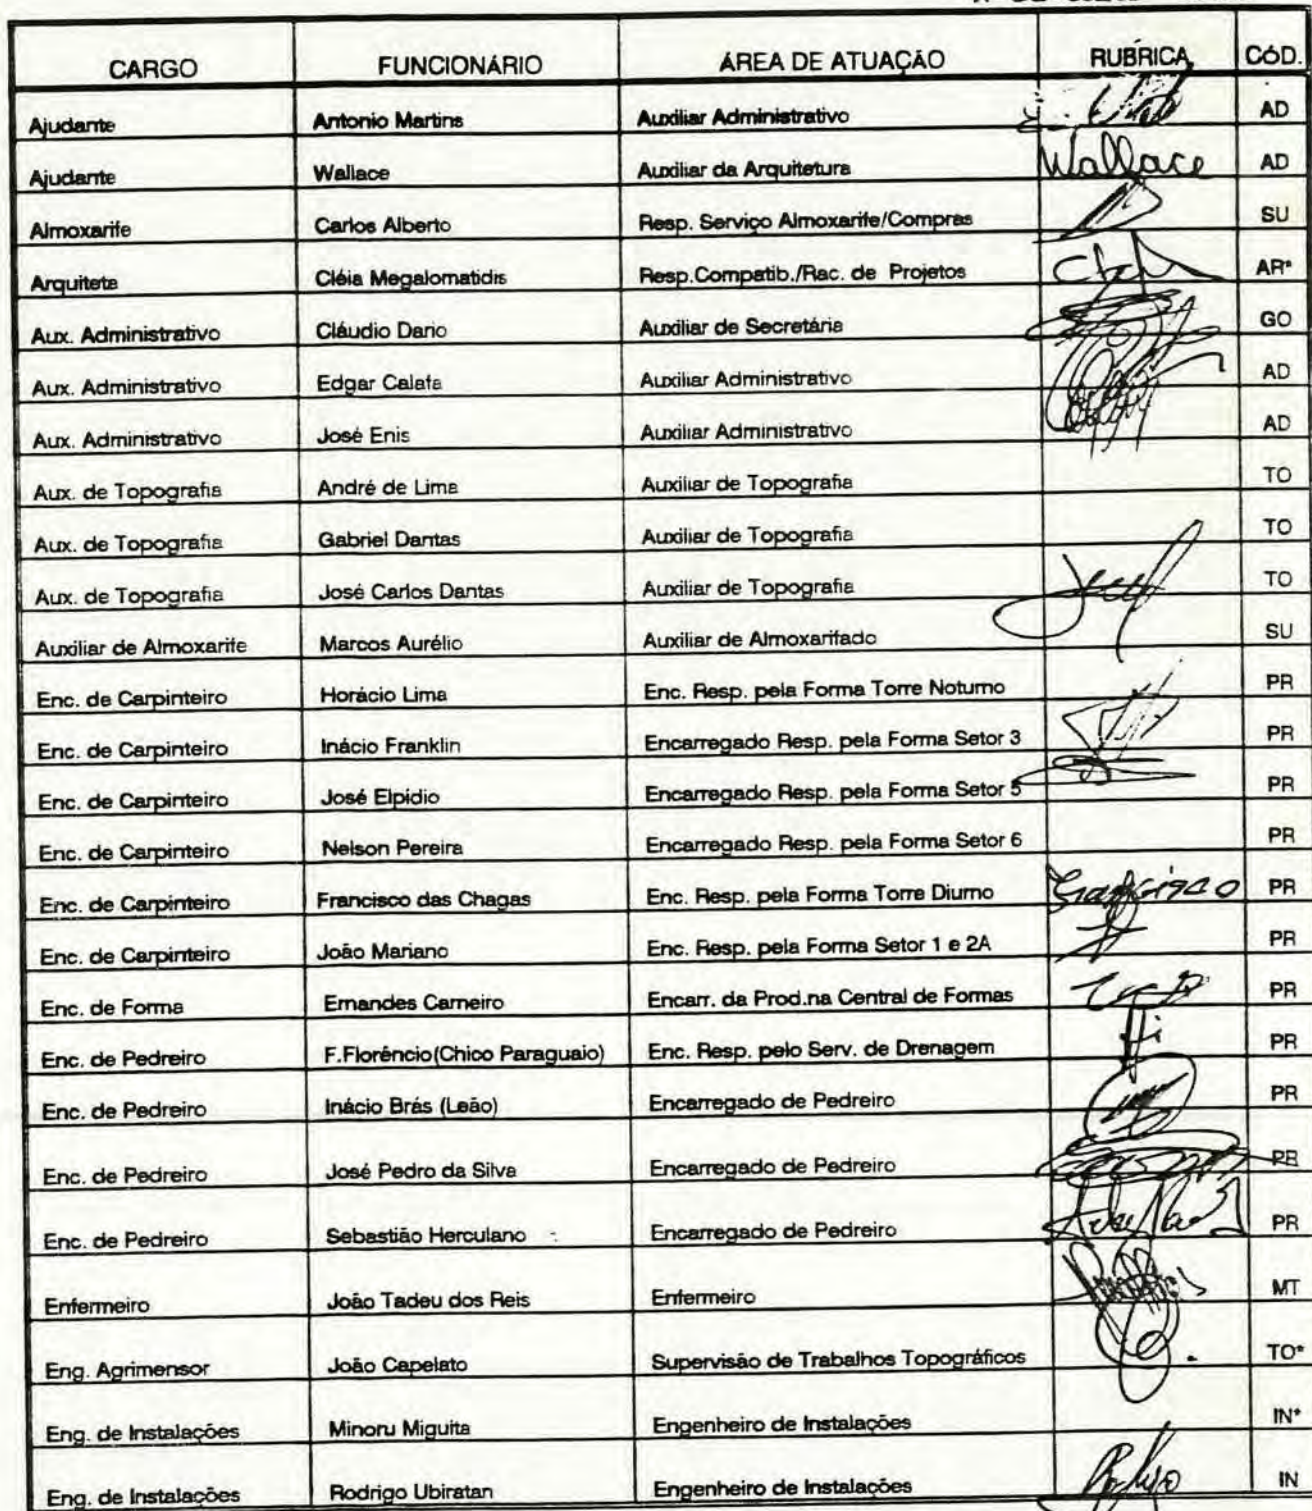 CARGO FUNCIONÁRIO ÁREA DE ATUAÇÃO RUBRICA CÓD.
Ajudante Antonio Martins Auxiliar Administrativo AD
Ajudante Wallace Auxiliar da Arquitetura Wallace AD
Almoxarife Carlos Alberto Resp. Serviço Almoxarife/Compras SU
Arquiteta Cléia Megalomatidis Resp.Compatib./Rac. de Projetos AR*
Aux. Administrativo Cláudio Dario Auxiliar de Secretária GO
Aux. Administrativo Edgar Calafa Auxiliar Administrativo AD
Aux. Administrativo José Enis Auxiliar Administrativo AD
Aux. de Topografia André de Lima Auxiliar de Topografia TO
Aux. de Topografia Gabriel Dantas Auxiliar de Topografia TO
Aux. de Topografia José Carlos Dantas Auxiliar de Topografia TO
Auxiliar de Almoxarife Marcos Aurélio Auxiliar de Almoxarifado SU
Enc. de Carpinteiro Horácio Lima Enc. Resp. pela Forma Torre Noturno PR
Enc. de Carpinteiro Inácio Franklin Encarregado Resp. pela Forma Setor 3 PR
Enc. de Carpinteiro José Elpídio Encarregado Resp. pela Forma Setor 5 PR
Enc. de Carpinteiro Nelson Pereira Encarregado Resp. pela Forma Setor 6 PR
Enc. de Carpinteiro Francisco das Chagas Enc. Resp. pela Forma Torre Diurno PR
Enc. de Carpinteiro João Mariano Enc. Resp. pela Forma Setor 1 e 2A PR
Enc. de Forma Ernandes Carneiro Encarr. da Prod.na Central de Formas PR
Enc. de Pedreiro F.Florêncio(Chico Paraguaio) Enc. Resp. pelo Serv. de Drenagem PR
Enc. de Pedreiro Inácio Brás (Leão) Encarregado de Pedreiro PR
Enc. de Pedreiro José Pedro da Silva Encarregado de Pedreiro PR
Enc. de Pedreiro Sebastião Herculano Encarregado de Pedreiro PR
Enfermeiro João Tadeu dos Reis Enfermeiro MT
Eng. Agrimensor João Capelato Supervisão de Trabalhos Topográficos TO*
Eng. de Instalações Minoru Miguita Engenheiro de Instalações IN*
Eng. de Instalações Rodrigo Ubiratan Engenheiro de Instalações IN